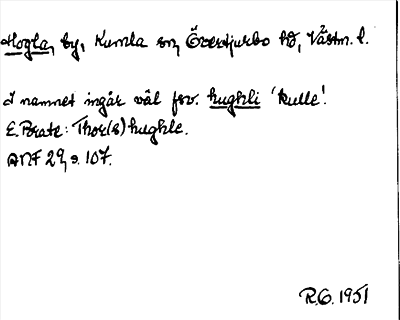 Hogla, by, Kumla sn, Övertjurbo hd, Västm. l.
I namnet ingår väl fsv. hughli 'kulle'.
E. Brate: Thor(s)hughle.
ANF 29, s. 107.
R.O. 1951